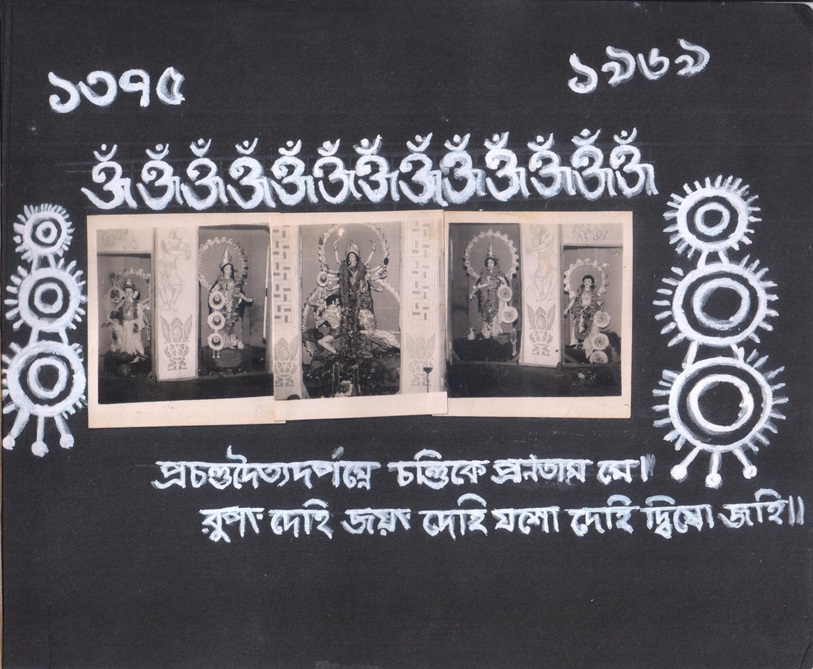 ১৩৭৫ ১৯৬৯
ওঁ ওঁ ওঁ ওঁ ওঁ ওঁ ওঁ ওঁ ওঁ ওঁ ওঁ ওঁ ওঁ
প্রচণ্ডদৈত্যদর্পঘ্নে চণ্ডিকে প্রণতায় মে।
রুপং দেহি জয়ং দেহি যশো দেহি দ্বিষো জহি॥